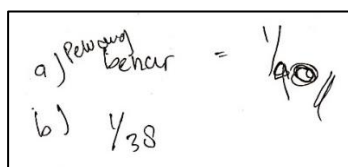 a) Peluang benar =
b) 1/38